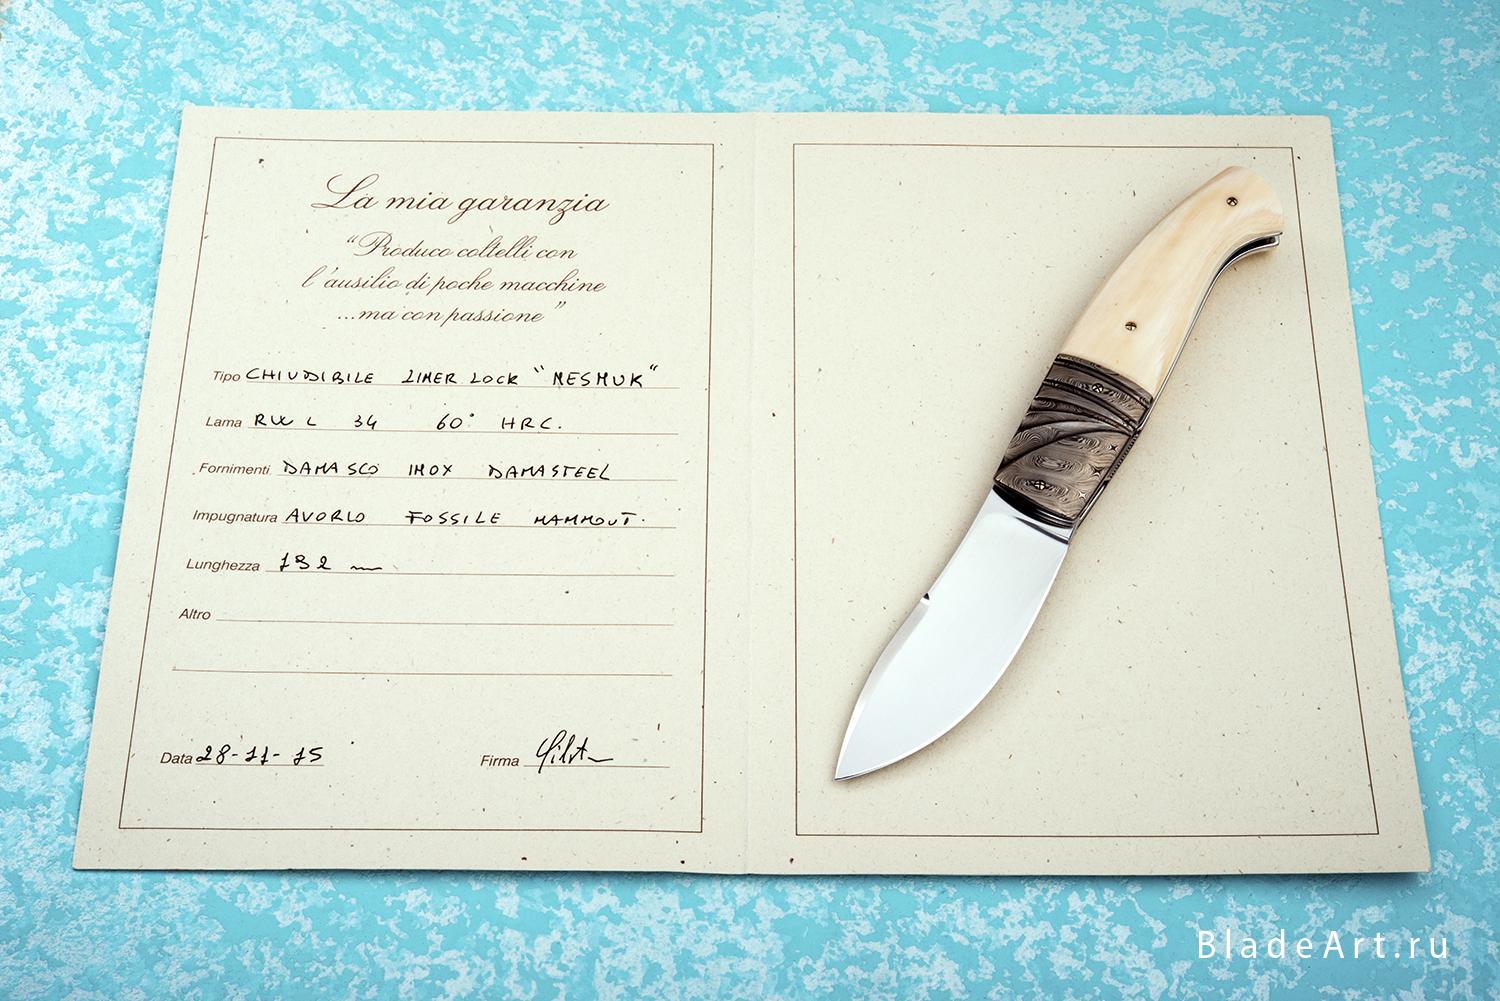 La mia garanzia
“Produco coltelli con
l'ausilio di poche macchine
...ma con passione”
Tipo CHIUDIBILE LINER LOCK "NESMUK"
Lama RWL 34 60° HRC.
Fornimenti DAMASCO INOX DAMASTEEL
Impugnatura AVORIO FOSSILE MAMMOUT.
Lunghezza
Altro
Data 28-11-15
Firma
BladeArt.ru